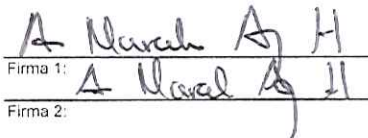 A Marah Ag H
Firma 1:
A Maral Ag H
Firma 2: